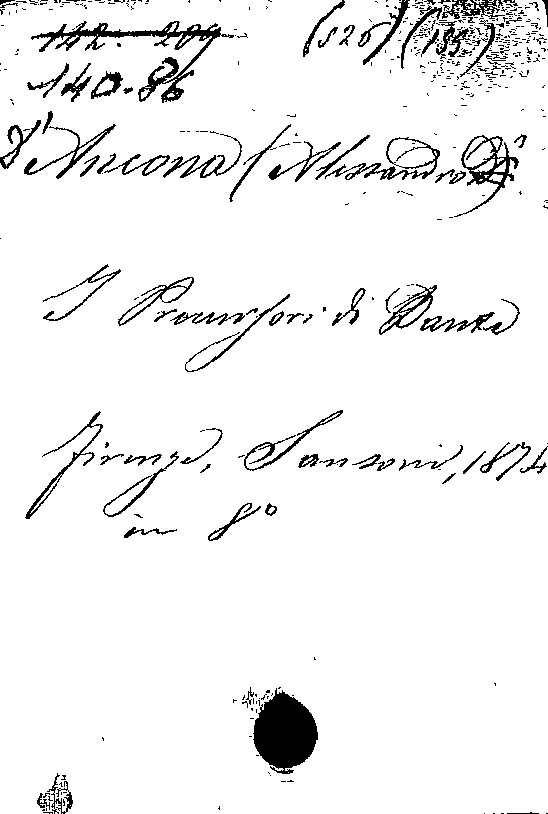 142. 209 (526) (155)
140.86
D'Ancona (Alessandro)
I Precursori di Dante
Firenze, Sansoni, 1874
in 8°